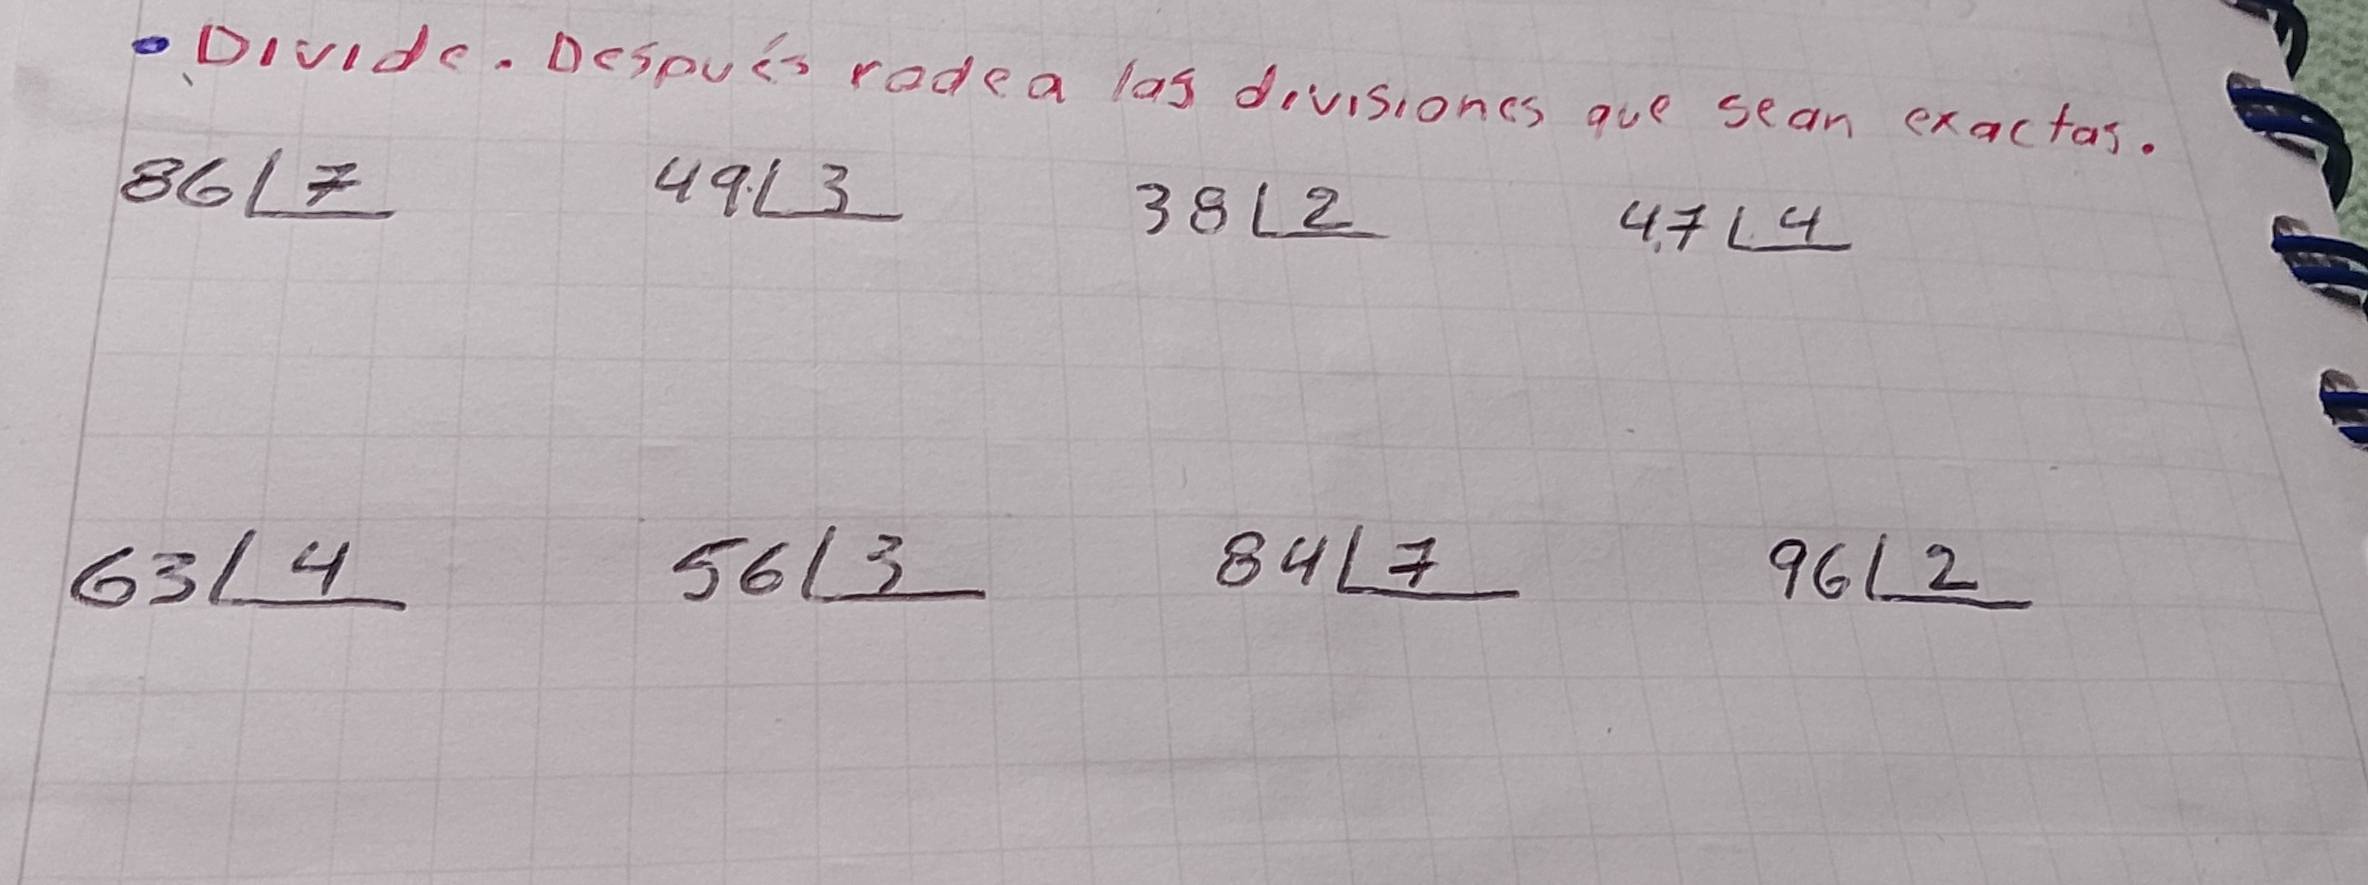 • Divide. Después rodea las divisiones que sean exactas.
86 ∟7 49 ∟3 38 ∟2 47 ∟4
63 ∟4 56 ∟3 84 ∟7 96 ∟2